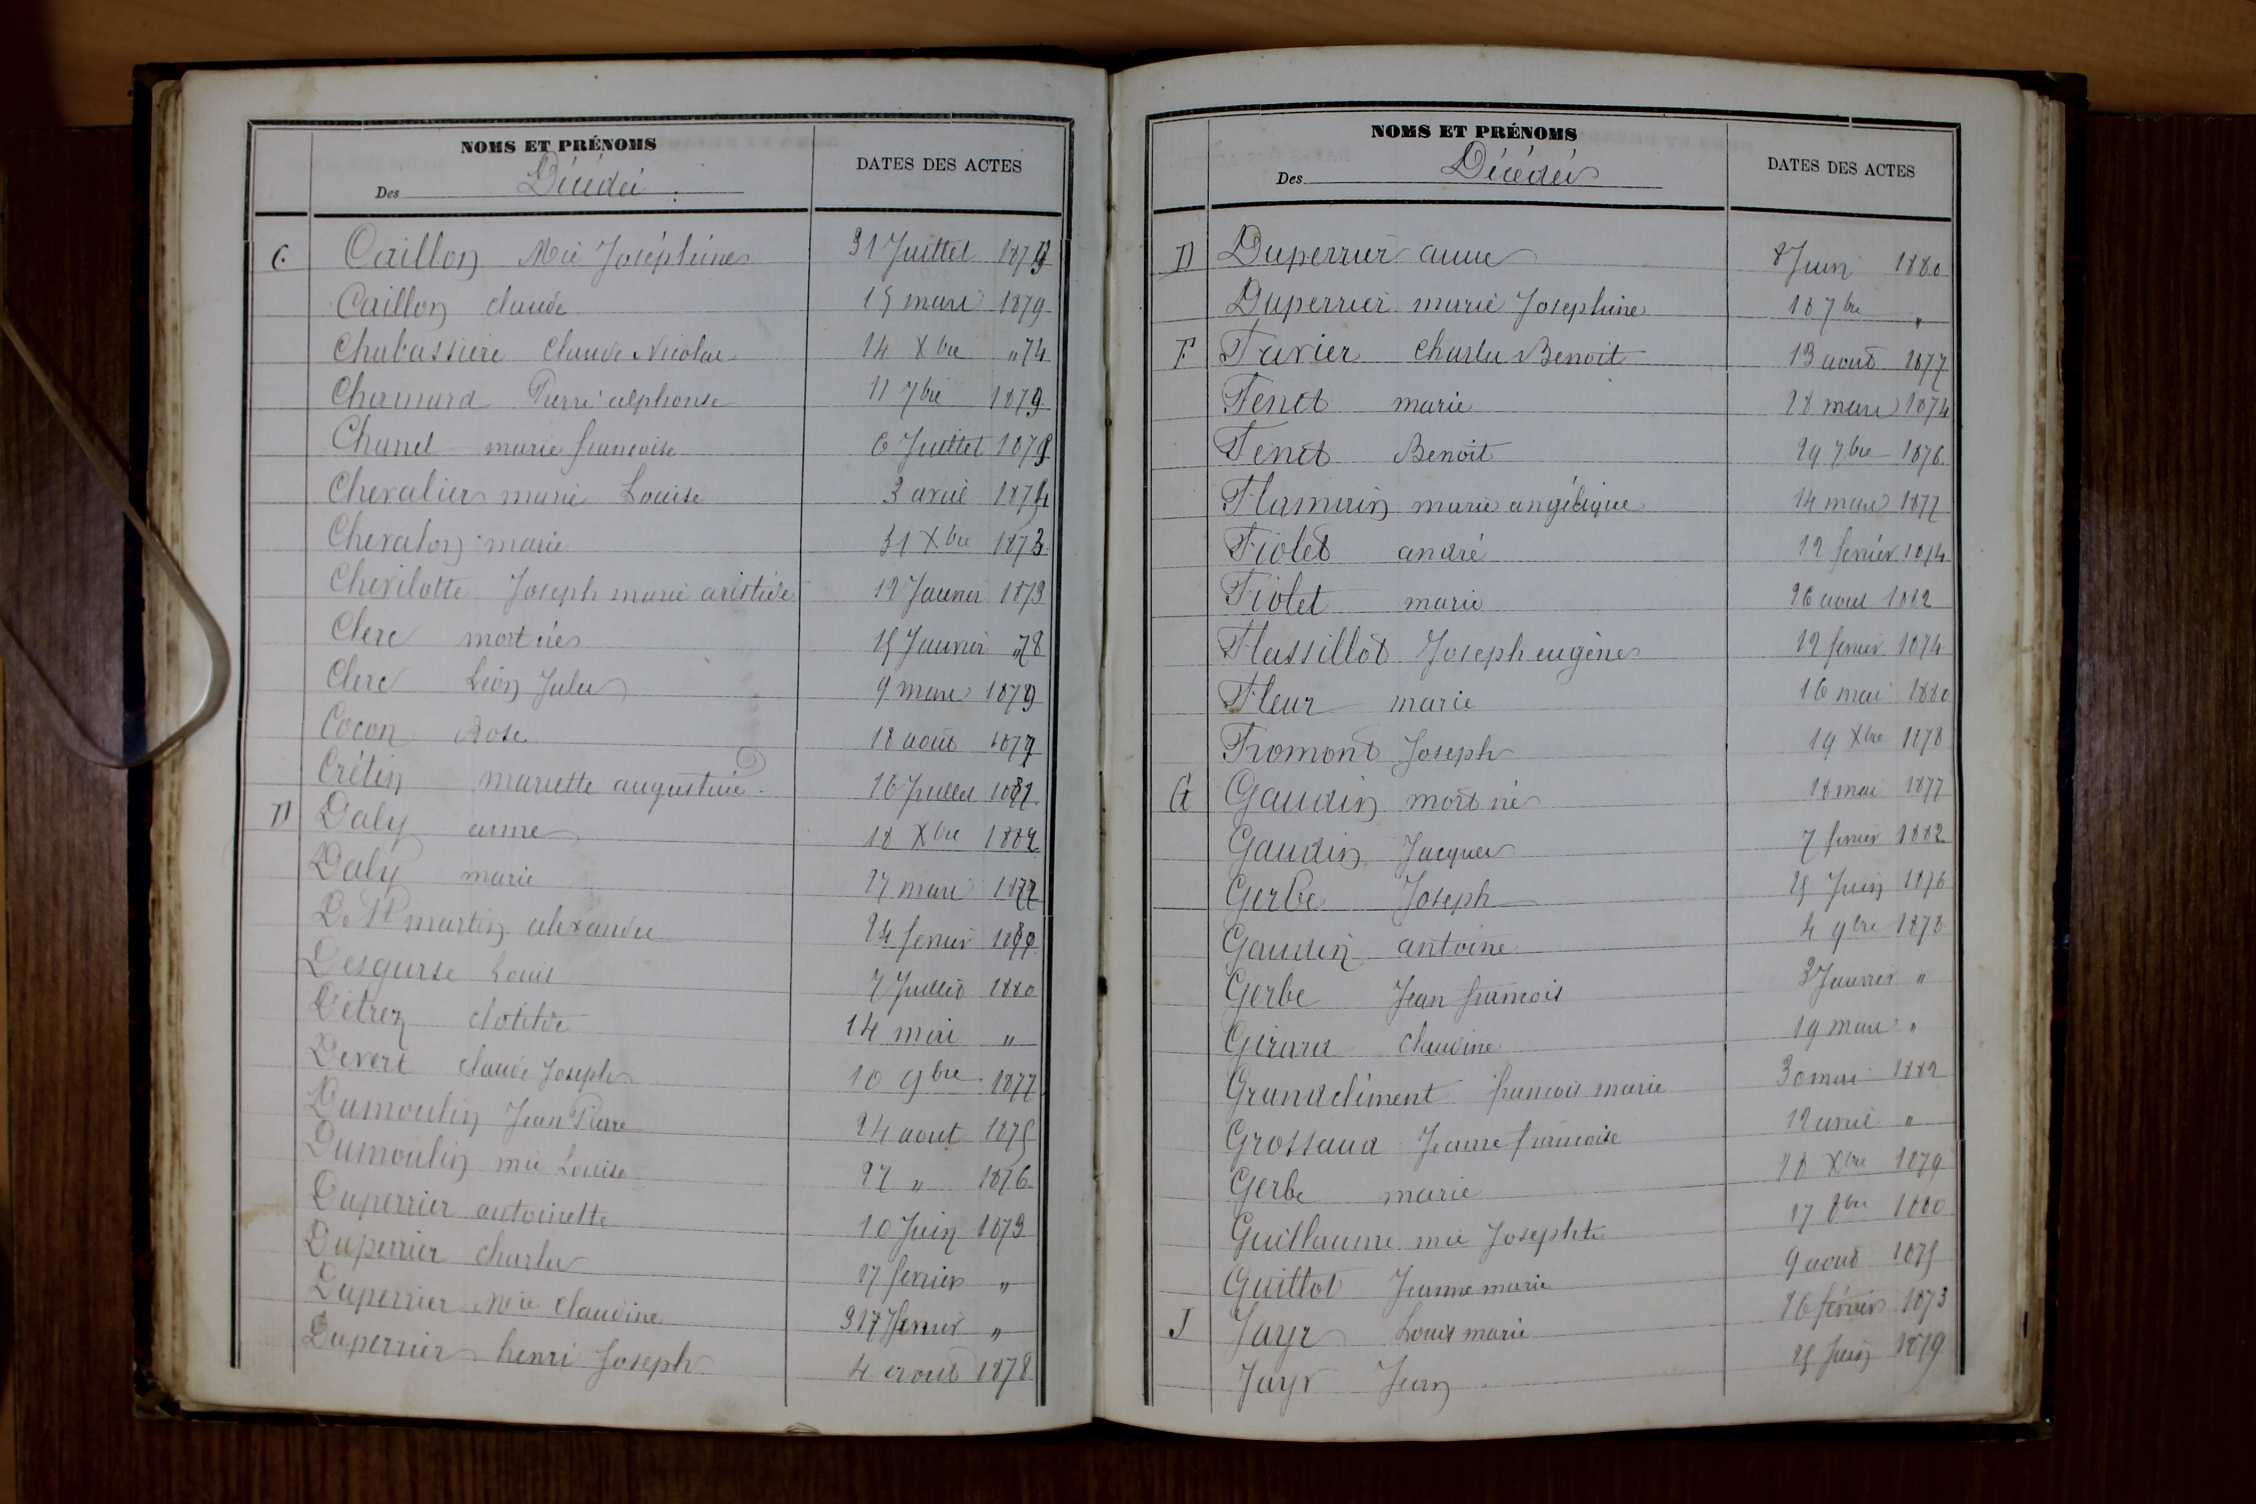 NOMS ET PRÉNOMS
Des Décédés
DATES DES ACTES
C. Caillon Mie Joséphine 31 Juillet 1879
Caillon claude 15 mars 1879
Chabassière Claude Nicolas 14 Xbre "74
Chamard Pierre alphonse 11 7bre 1879
Chanel marie françoise 6 Juillet 1879
Chevalier marie Louise 3 avril 1874
Chevalon marie 31 Xbre 1873
Chevilotte Joseph marie aristide 12 Janvier 1873
Clerc mort née 15 Janvier "78
Clerc Léon Jules 9 mars 1879
Cocon Rose 18 août 1877
Crétin mariette augustine 16 Juillet
D Daly anne 18 Xbre 1882
Daly marie 27 mars 1877
De St martin alexandre 24 fevrier
Desgurse Louis 7 Juillet 1880
Détrez clotilde 14 mai "
Devert claude Joseph 10 9bre 1877
Dumoulin Jean Pierre 24 aout 1875
Dumoulin mie Louise 27 " 1876
Duperrier antoinette 10 Juin 1873
Duperrier charles 17 fevrier "
Duperrier Mie Claudine fevrier "
Duperrier henri Joseph 4 août 1878
NOMS ET PRÉNOMS
Des Décédés
DATES DES ACTES
D Duperrier anne 8 Juin 1880
Duperrier marie Josephine 18 7bre "
F Favier Charles Benoit 13 août 1877
Fenet marie 28 mars 1874
Fenet Benoit 29 7bre 1876
Flamain marie angélique 14 mars 1877
Fiolet andré 12 fevrier 1874
Fiolet marie 26 aout 1882
Flassillot Joseph eugène 12 fevrier 1874
Fleur marie 16 mai 1880
Fromont Joseph 19 Xbre 1878
G Gaudin mort né 18 mai 1877
Gaudin Jacques 7 fevrier 1882
Gerbe Joseph 25 Juin 1876
Gaudin antoine 4 9bre 1878
Gerbe Jean françois 3 Janvier "
Girard Claudine 19 mars "
Grandclément françois marie 30 mai 1882
Grossaud Jeanne françoise 12 avril "
Gerbe marie 28 Xbre 1879
Guillaume mie Josephte 17 8bre 1880
Guillot Jeanne marie 9 août 1875
J Jayr Louis marie 26 février 1873
Jayr Jean 25 Juin 1879